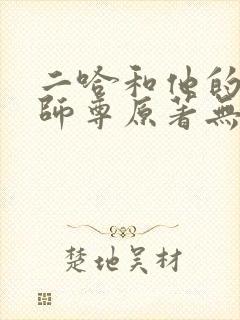 二哈和他的
師尊原著無
楚地吴材